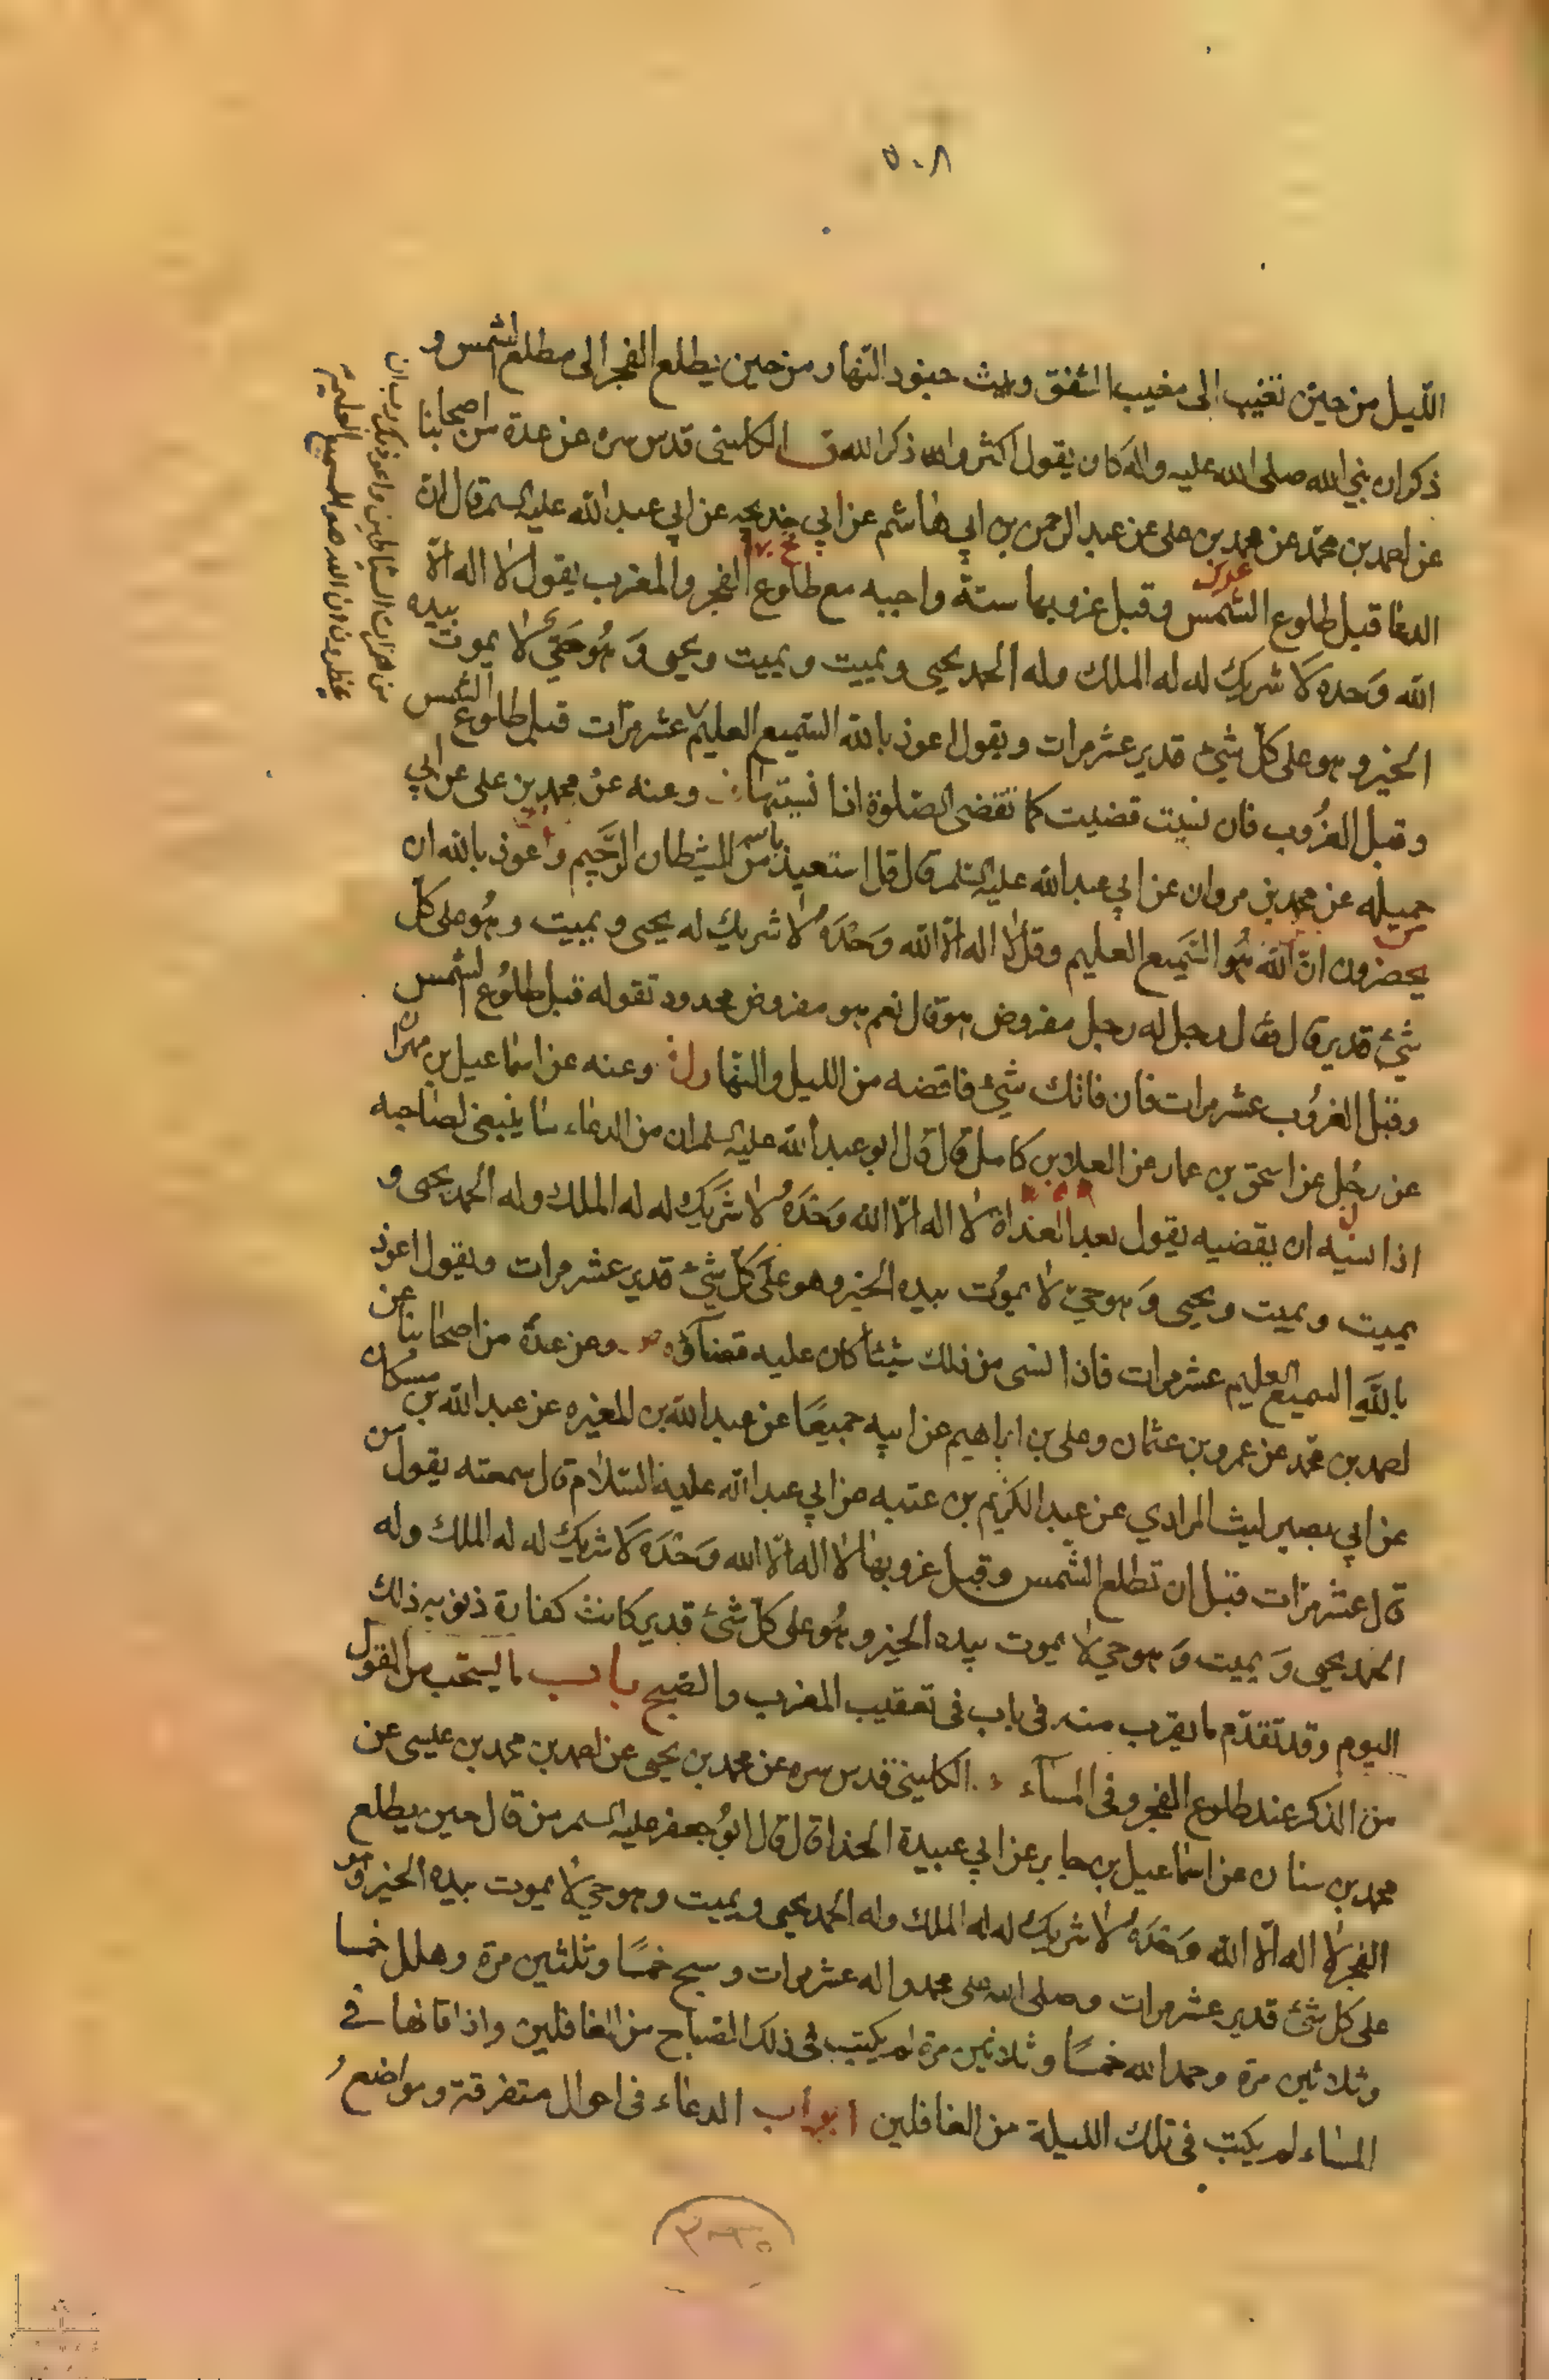 ٥٠٨
الليل من حين تغيب الى مغيب الشفق ويبث جنود النهار من حين يطلع الفجر الى مطلع الشمس و
ذكر ان نبي الله صلى الله عليه واله كان يقول اكثروا ذكر الله الكليني قدس سره عن عدة من اصحابنا
عن احمد بن محمد عن محمد بن على عن عبد الرحمن بن ابي هاشم عن ابي خديجه عن ابي عبد الله عليه السلم قال ان
الدعا قبل طلوع الشمس وقبل غروبها سنة واجبه مع طلوع الفجر والمغرب يقول لا اله الا
الله وحده لا شريك له له الملك وله الحمد يحيى ويميت ويميت ويحيى وهو حي لا يموت بيده
الخير وهو على كل شئ قدير عشر مرات ويقول اعوذ بالله السميع العليم عشر مرات قبل طلوع الشمس
وقبل الغروب فان نسيت قضيت كما تقضى الصلوة اذا نسيتها وعنه عن محمد بن على عن ابي
جميله عن محمد بن مروان عن ابي عبد الله عليه السلم قال قل استعيذ بالله من الشيطان الرجيم واعوذ بالله ان
يحضرون ان الله هو السميع العليم وقل لا اله الا الله وحده لا شريك له يحيى ويميت وهو على كل
شئ قدير قال فقال رجل له رجل مفروض هو قال نعم هو مفروض محدود تقوله قبل طلوع الشمس
وقبل الغروب عشر مرات فان فاتك شئ فاقضه من الليل والنهار وعنه عن اسماعيل بن مهران
عن رجل عن اسحق بن عمار عن العلا بن كامل قال قال ابو عبد الله عليه السلم ان من الدعاء ما ينبغى لصاحبه
اذا نسيه ان يقضيه يقول بعد الغداة لا اله الا الله وحده لا شريك له له الملك وله الحمد يحيى و
يميت ويميت ويحيى وهو حي لا يموت بيده الخير وهو على كل شئ قدير عشر مرات ويقول اعوذ
بالله السميع العليم عشر مرات فاذا نسى من ذلك شيئا كان عليه قضآؤه وعن عدة من اصحابنا عن
احمد بن محمد عن عمرو بن عثمان وعلى بن ابراهيم عن ابيه جميعا عن عبد الله بن المغيره عن عبد الله بن مسكان
عن ابي بصير ليث المرادي عن عبد الكريم بن عتبه عن ابي عبد الله عليه السلام قال سمعته يقول من
قال عشر مرات قبل ان تطلع الشمس وقبل غروبها لا اله الا الله وحده لا شريك له له الملك وله
الحمد يحيى ويميت وهو حي لا يموت بيده الخير وهو على كل شئ قدير كانت كفارة ذنوبه ذلك
اليوم وقد تقدم ما يقرب منه فى باب فى تعقيب المغرب والصبح باب ما يستحب من القول
من الذكر عند طلوع الفجر وفى المسآء الكليني قدس سره عن محمد بن يحيى عن احمد بن محمد بن عيسى عن
محمد بن سنان عن اسماعيل بن جابر عن ابي عبيدة الحذا قال قال ابو جعفر عليه السلم من قال حين يطلع
الفجر لا اله الا الله وحده لا شريك له له الملك وله الحمد يحيى ويميت وهو حي لا يموت بيده الخير وهو
على كل شئ قدير عشر مرات وصلى الله على محمد واله عشر مرات وسبح خمسا وثلثين مرة وهلل خمسا
وثلاثين مرة وحمد الله خمسا وثلاثين مرة لم يكتب فى ذلك الصباح من الغافلين واذا قالها فى
المساء لم يكتب فى تلك الليلة من الغافلين ابواب الدعاء فى احوال متفرقة ومواضع
من همزات الشياطين واعوذ بك رب ان
يحضرون ان الله هو السميع العليم